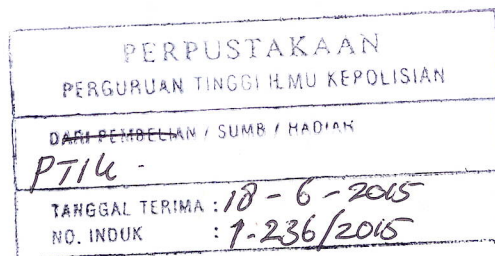 PERPUSTAKAAN
PERGURUAN TINGGI ILMU KEPOLISIAN
DARI PEMBELIAN / SUMB / HADIAH
PTIK -
TANGGAL TERIMA : 18 - 6 - 2015
NO. INDUK : 1-236/2015